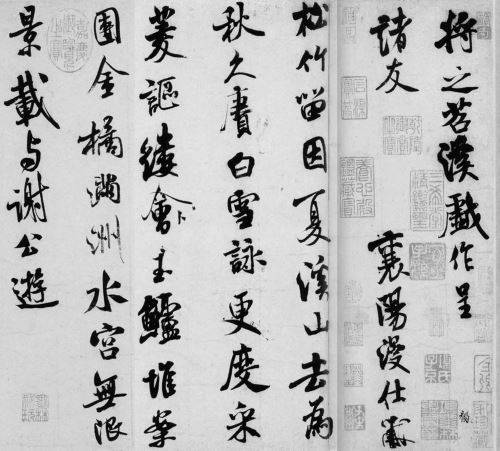 将之苕溪戲作呈
諸友
襄陽漫仕黻
松竹留因夏溪山去為
秋久賡白雪詠更度采
菱謳縷會玉鱸堆案
團金橘滿洲水宮無限
景載與謝公遊